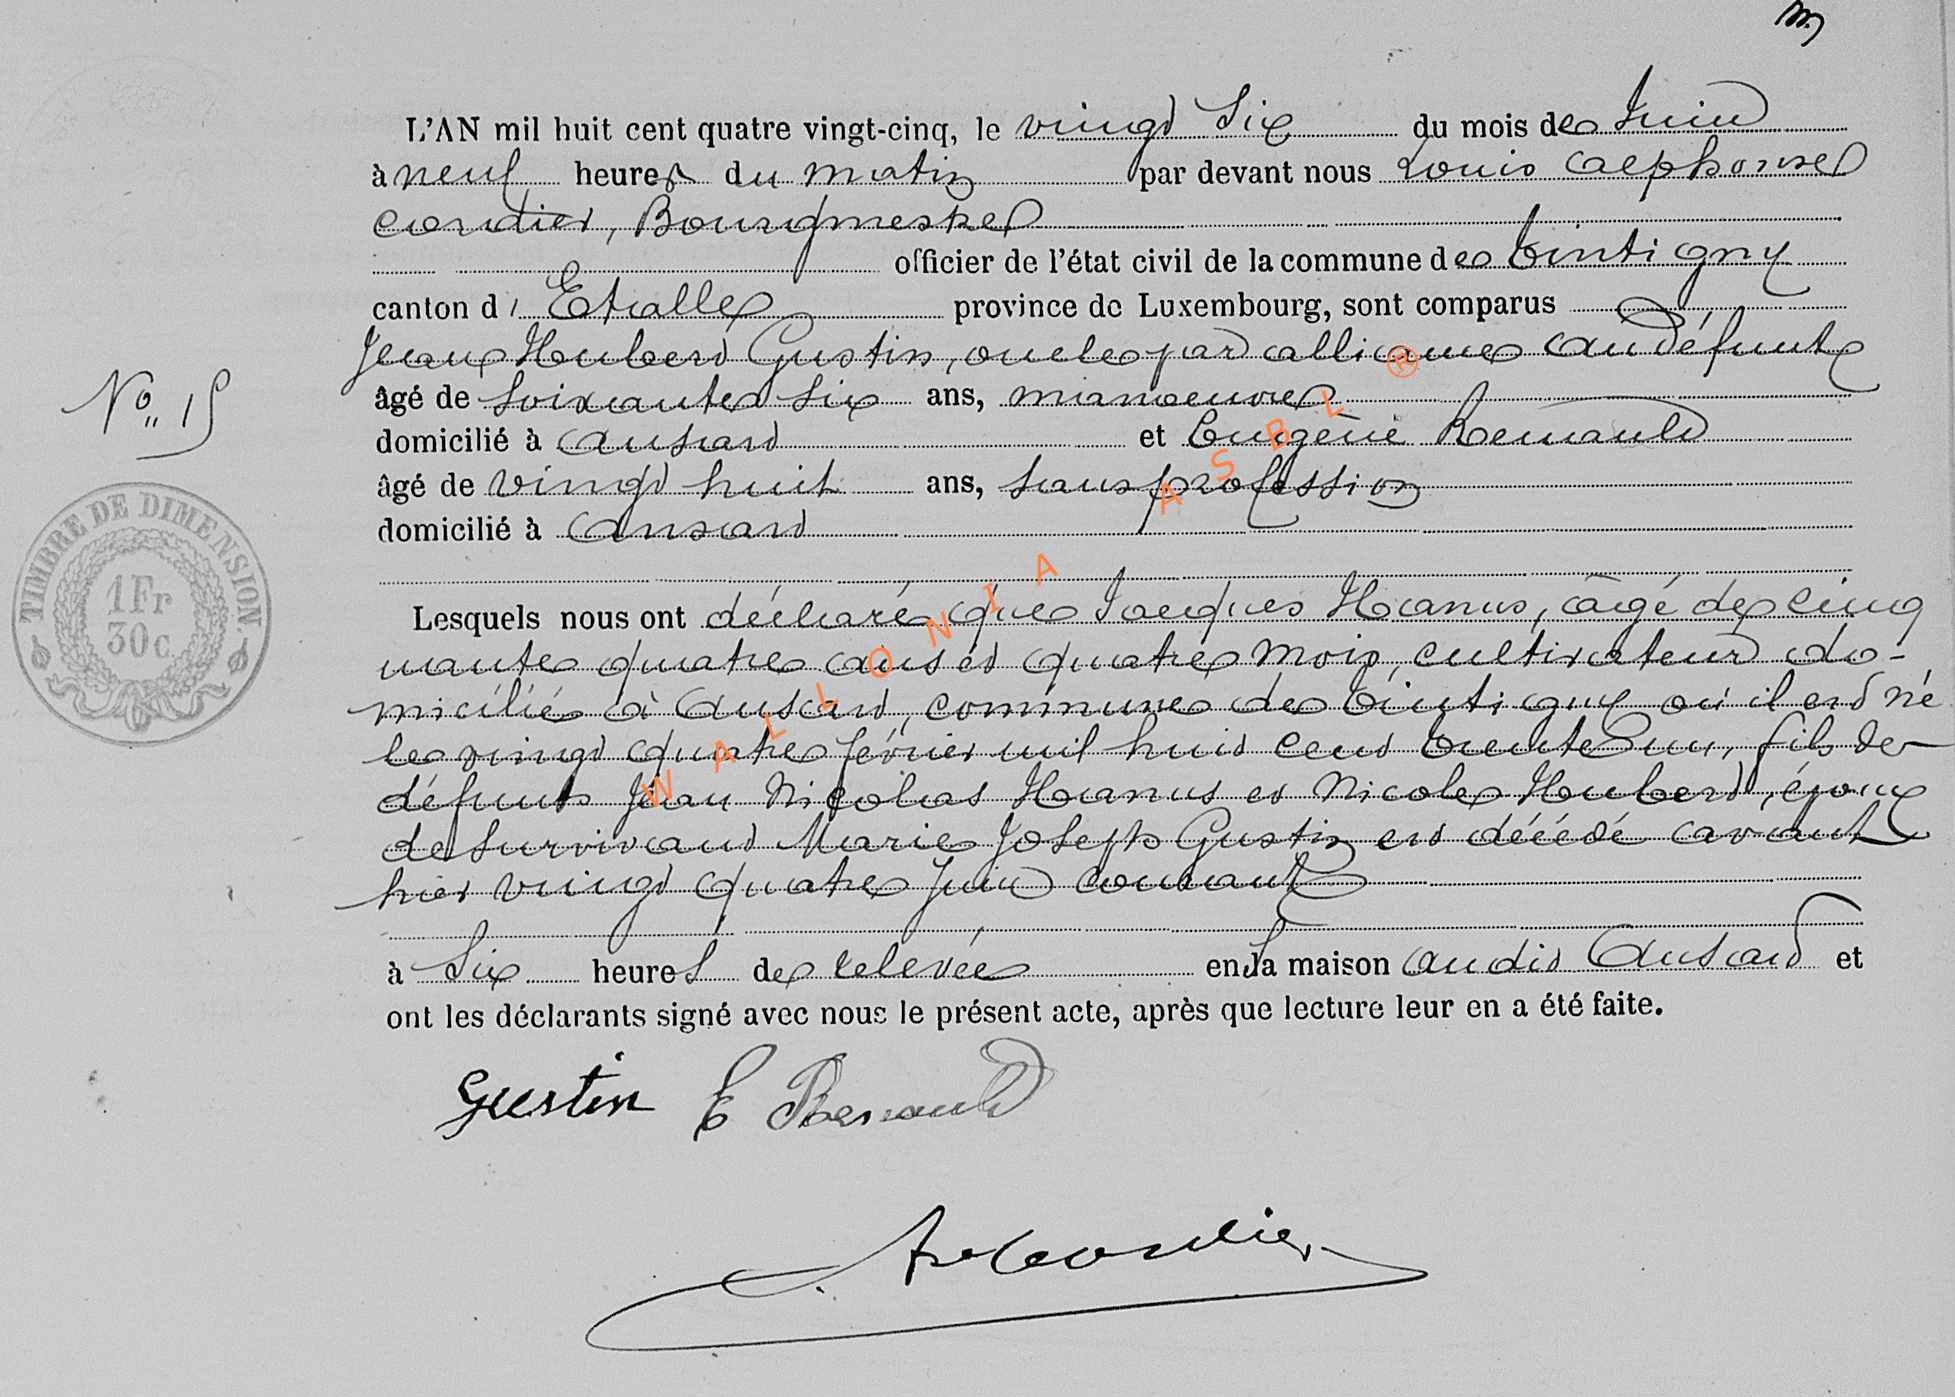 L'AN mil huit cent quatre vingt-cinq, le vingt Six du mois de Juin
à neuf heures du matin par devant nous Louis Alphonse
Cordier, Bourgmestre
officier de l'état civil de la commune de Tintigny
canton d' Etalle province de Luxembourg, sont comparus
Jean Hubert Gustin, oncle par alliance au défunt
âgé de soixante six ans, manoeuvre
domicilié à Ansart et Eugène Renauld
âgé de vingt huit ans, sans profession
domicilié à Ansart
Lesquels nous ont déclaré que Jacques Hanus, âgé de cinq
uante quatre ans et quatre mois, cultivateur do-
micilié à Ansart, commune de Tintigny où il est né
le vingt quatre février mil huit cent trente un, fils de
défunts Jean Nicolas Hanus et Nicole Hubert, époux
de survivant Marie Joseph Gustin est décédé avant
hier vingt quatre Juin courant
à Six heures de relevée en sa maison audit Ansart et
ont les déclarants signé avec nous le présent acte, après que lecture leur en a été faite.
Gustin E Renauld
No 15
TIMBRE DE DIMENSION.
1Fr
30c
WALLONIA ASBL ®